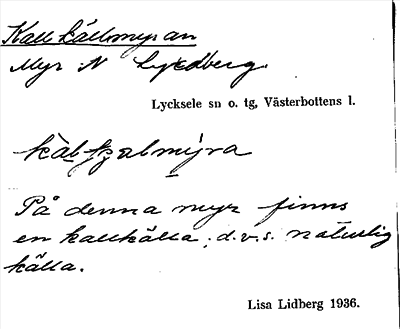 Kallkällmyran
Myr N Lycdberg.
Lycksele sn o. tg, Västerbottens l.
kàlkjælmýra
På denna myr finns
en kallkälla, d.v.s. naturlig
källa.
Lisa Lidberg 1936.